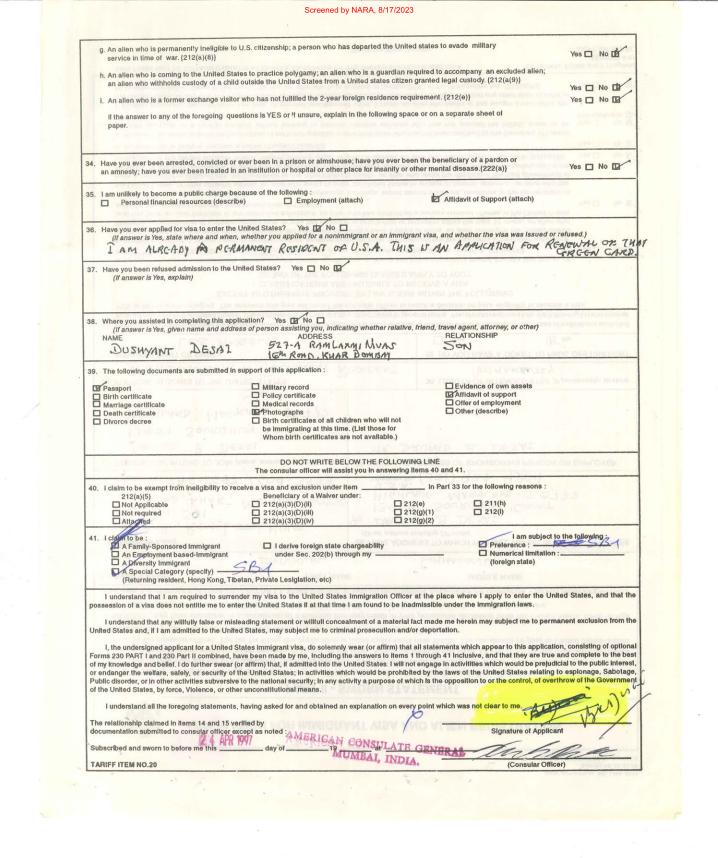 Screened by NARA, 8/17/2023
g. An alien who is permanently ineligible to U.S. citizenship; a person who has departed the United states to evade military
service in time of war. {212(a)(8)}
Yes No
h. An alien who is coming to the United States to practice polygamy; an alien who is a guardian required to accompany an excluded alien;
an alien who withholds custody of a child outside the United States from a United states citizen granted legal custody. {212(a(9)}
Yes No
i. An alien who is a former exchange visitor who has not fulfilled the 2-year foreign residence requirement. {212(e)}
Yes No
If the answer to any of the foregoing questions is YES or if unsure, explain in the following space or on a separate sheet of
paper.
34. Have you ever been arrested, convicted or ever been in a prison or almshouse; have you ever been the beneficiary of a pardon or
an amnesty; have you ever been treated in an institution or hospital or other place for insanity or other mental disease.{222(a)}
Yes No
35. I am unlikely to become a public charge because of the following :
Personal financial resources (describe) Employment (attach) Affidavit of Support (attach)
36. Have you ever applied for visa to enter the United States? Yes No
(If answer is Yes, state where and when, whether you applied for a nonimmigrant or an immigrant visa, and whether the visa was issued or refused.)
I AM ALREADY A PERMANENT RESIDENT OF U.S.A. THIS IS AN APPLICATION FOR RENEWAL OF THAT
GREEN CARD.
37. Have you been refused admission to the United States? Yes No
(If answer is Yes, explain)
38. Where you assisted in completing this application? Yes No
(If answer is Yes, given name and address of person assisting you, indicating whether relative, friend, travel agent, attorney, or other)
NAME ADDRESS RELATIONSHIP
DUSHYANT DESAI 527-A RAMLAXMI NIVAS SON
16th ROAD, KHAR BOMBAY
39. The following documents are submitted in support of this application :
Passport Military record Evidence of own assets
Birth certificate Policy certificate Affidavit of support
Marriage certificate Medical records Offer of employment
Death certificate Photographs Other (describe)
Divorce decree Birth certificates of all children who will not
be immigrating at this time. (List those for
Whom birth certificates are not available.)
DO NOT WRITE BELOW THE FOLLOWING LINE
The consular officer will assist you in answering items 40 and 41.
40. I claim to be exempt from ineligibility to receive a visa and exclusion under item in Part 33 for the following reasons :
212(a)(5) Beneficiary of a Waiver under:
Not Applicable 212(a)(3)(D)(ii) 212(e) 211(h)
Not required 212(a)(3)(D)(iii) 212(g)(1) 212(i)
Attached 212(a)(3)(D)(iv) 212(g)(2)
41. I claim to be : I am subject to the following :
A Family-Sponsored Immigrant I derive foreign state chargeability Preference : SB1
An Employment based-Immigrant under Sec. 202(b) through my Numerical limitation :
A Diversity Immigrant (foreign state)
A Special Category (specify) SB1
(Returning resident, Hong Kong, Tibetan, Private Lesiglation, etc)
I understand that I am required to surrender my visa to the United States Immigration Officer at the place where I apply to enter the United States, and that the
possession of a visa does not entitle me to enter the United States if at that time I am found to be inadmissible under the immigration laws.
I understand that any willfully false or misleading statement or willfull concealment of a material fact made me herein may subject me to permanent exclusion from the
United States and, if I am admitted to the United States, may subject me to criminal prosecution and/or deportation.
I, the undersigned applicant for a United States Immigrant visa, do solemnly wear (or affirm) that all statements which appear to this application, consisting of optional
Forms 230 PART I and 230 Part II combined, have been made by me, including the answers to Items 1 through 41 inclusive, and that they are true and complete to the best
of my knowledge and belief. I do further swear (or affirm) that, if admitted into the United States. I will not engage in activities which would be prejudicial to the public interest,
or endanger the welfare, safely, or security of the United States; in activities which would be prohibited by the laws of the United States relating to espionage, Sabotage,
Public disorder, or in other activities subversive to the national security; in any activity a purpose of which is the opposition to or the control, of overthrow of the Government
of the United States, by force, Violence, or other unconstitutional means.
I understand all the foregoing statements, having asked for and obtained an explanation on every point which was not clear to me.
The relationship claimed in items 14 and 15 verified by
documentation submitted to consular officer except as noted :
Signature of Applicant
24 APR 1997
AMERICAN CONSULATE GENERAL
MUMBAI, INDIA.
Subscribed and sworn to before me this day of 19 at
(Consular Officer)
TARIFF ITEM NO.20